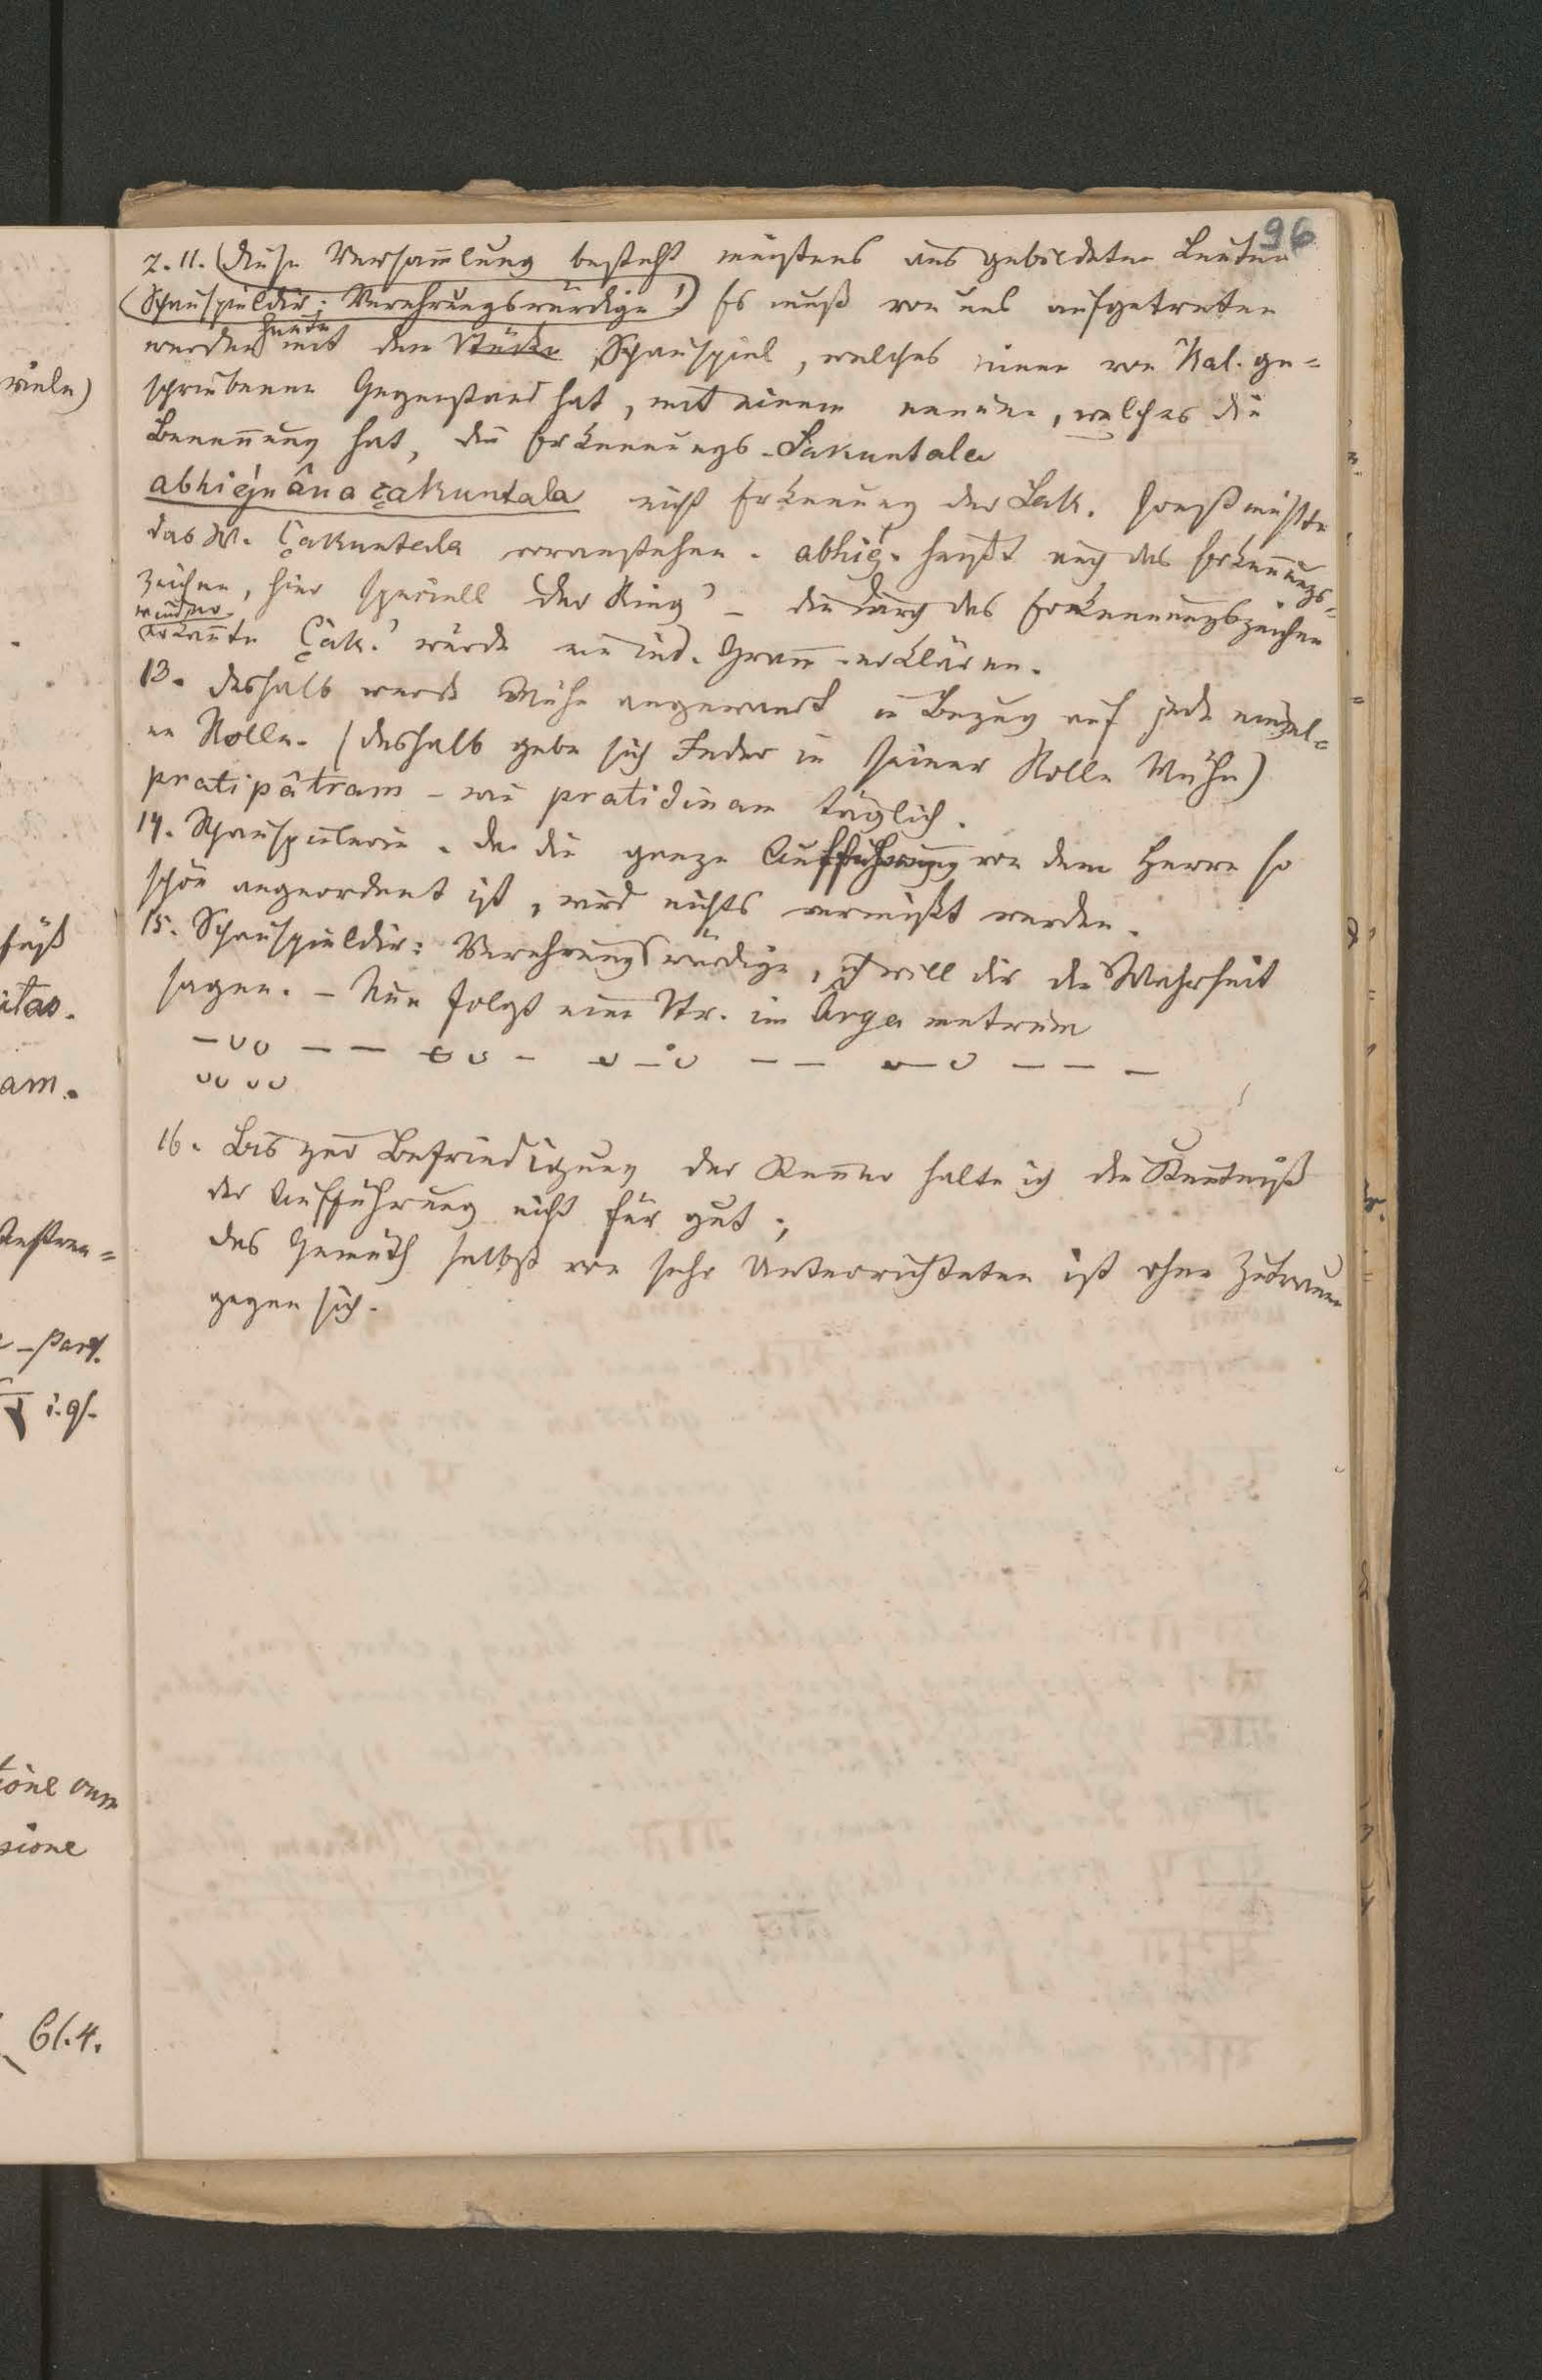 viele)
96
Z. 11. (Diese Versam̄lung besteht meistens aus gebildeten Leuten
(Schauspieldir: Verehrungswürdige!) Es muß von uns aufgetreten
heute
werden mit dem Stücke Schauspiel, welches einen von Kal. ge=
schriebenen Gegenstand hat, mit einem neuen, welches die
Benen̄ung hat, die Erkennungs-Sakuntala
abhiǵnâna çakuntala nicht Erkennung der Sak. sonst müßte
das W. Çakuntala voranstehen. abhiǵ. heißt auch das Erken̄ungs=
zeichen, hier speciell der Ring' – die durch das Erkennungszeichen
wieder
erkan̄te Çak.' würde ein ind. Gram̄. erklären.
13. deshalb werde Mühe angewandt in Bezug auf jede einzel=
ne Rolle. (deshalb gebe sich Jeder in seiner Rolle Mühe)
pratipâtram – wie pratidinam täglich.
14. Schauspielerin. da die ganze Aufführung von dem Herrn so
schön angeordnet ist, wird nichts vermißt werden.
15. Schauspieldir: Verehrungswürdige, ich will dir die Wahrheit
sagen. – Nun folgt eine Str. im Ârya metrum
16. Bis zur Befriedigung der Kenner halte ich die Kentniß
der Aufführung nicht für gut;
das Gemüth selbst von sehr Unterrichteten ist ohne Zutrauen
gegen sich.
itas.
am.
part.
i. q.
sione
Cl. 4.